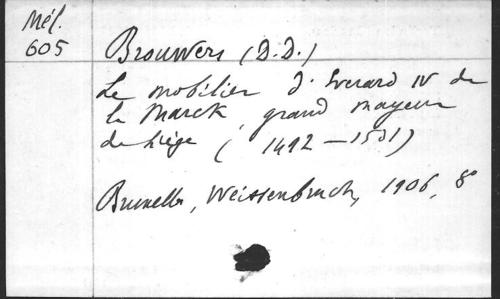 Mél.
605
Brouwers (D.D.)
Le mobilier d'Everard IV de
la Marck, grand mayeur
de Liège (1492-1531)
Bruxelles, Weissenbruch, 1906, 8°